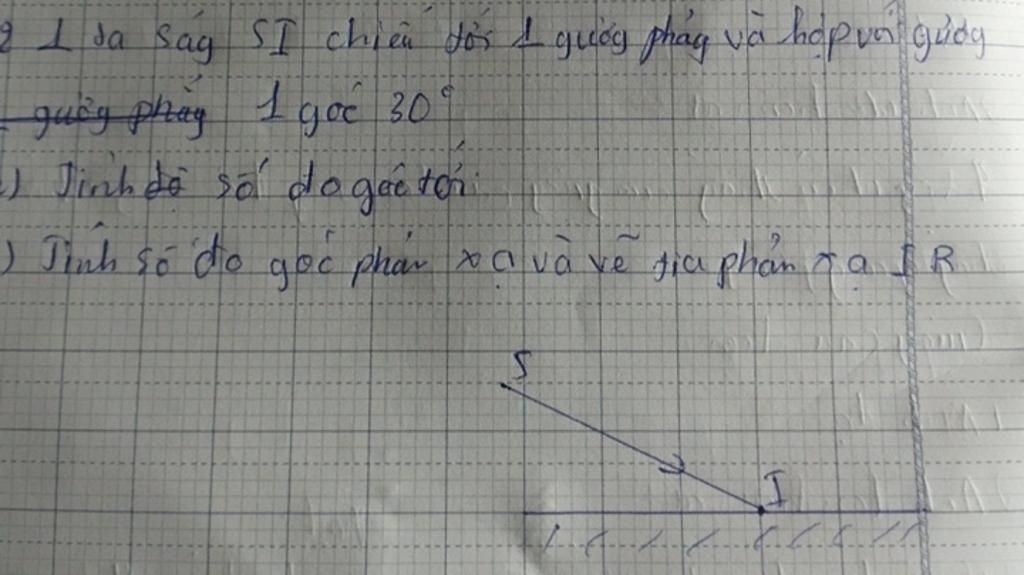 1 tia ság SI chiếu tới 1 gướg phảg và hợp với gướg
gướg phảg 1 góc 30°
) Tính độ số đo góc tới
) Tính số đo góc phản xạ và vẽ tia phản xạ IR
S
I